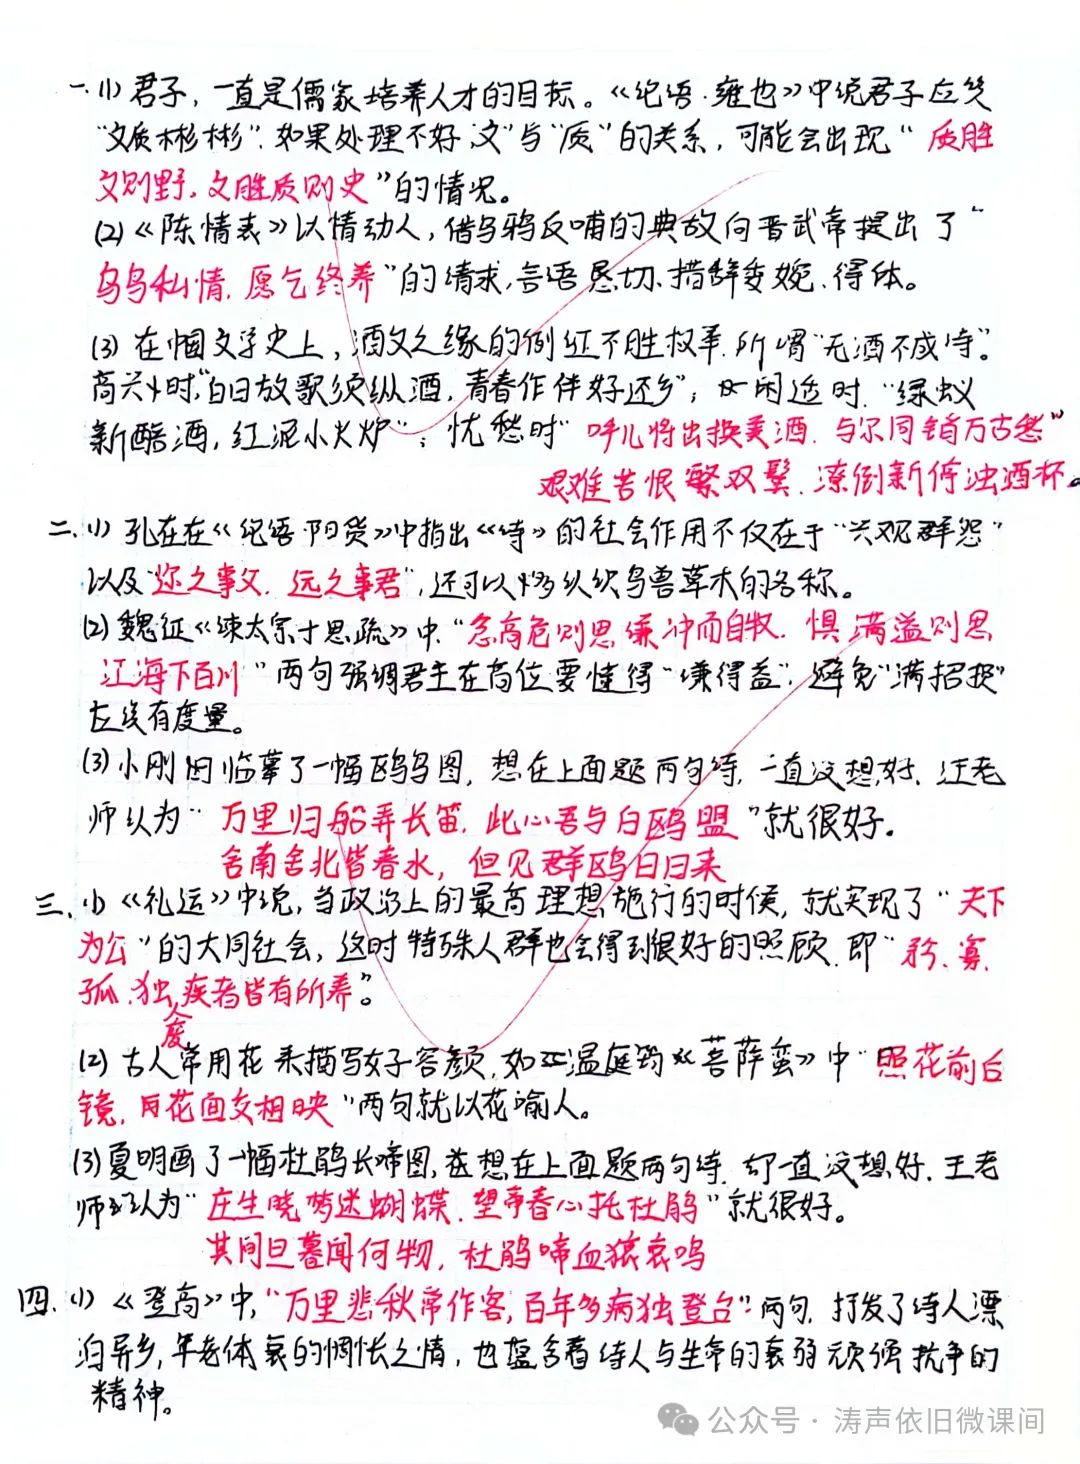 一、(1) 君子，一直是儒家培养人才的目标。《论语·雍也》中说君子应
“文质彬彬”.如果处理不好“文”与“质”的关系，可能会出现“质胜
文则野，文胜质则史”的情况。
(2)《陈情表》以情动人，借乌鸦反哺的典故向晋武帝提出了“
乌鸟私情，愿乞终养”的请求，言语恳切，措辞委婉、得体。
(3) 在中国文学史上，酒文之缘的例证不胜枚举.所谓“无酒不成诗”。
高兴时，“白日放歌须纵酒，青春作伴好还乡”；闲适时“绿蚁
新醅酒，红泥小火炉”；忧愁时“呼儿将出换美酒.与尔同销万古愁”
艰难苦恨繁双鬓.潦倒新停浊酒杯。
二、(1) 孔在在《论语·阳货》中指出《诗》的社会作用不仅在于“兴观群怨”
以及“迩之事父，远之事君”，还可以多认识鸟兽草木的名称。
(2) 魏征《谏太宗十思疏》中.“念高危则思谦冲而自牧.惧满溢则思
江海下百川”两句强调君主在高位要懂得“谦得益”，避免“满招损”
有度量。
(3) 小刚临摹了一幅鸥鸟图，想在上面题两句诗，一直没想好.汪老
师认为“万里归船弄长笛，此心吾与白鸥盟”就很好。
舍南舍北皆春水，但见群鸥日日来
三、(1)《礼运》中说，当政治上的最高理想施行的时候，就实现了“天下
为公”的大同社会，这时特殊人群也会得到很好的照顾.即“矜、寡、
孤、独、废疾者皆有所养”。
(2) 古人常用花来描写女子容颜，如温庭筠《菩萨蛮》中“照花前后
镜，花面交相映”两句就以花喻人。
(3) 夏明画了一幅杜鹃长啼图，想在上面题两句诗.却一直没想好.王老
师认为“庄生晓梦迷蝴蝶.望帝春心托杜鹃”就很好。
其间旦暮闻何物，杜鹃啼血猿哀鸣
四.(1)《登高》中，“万里悲秋常作客，百年多病独登台”两句，抒发了诗人漂
泊异乡，年老体衰的惆怅之情，也蕴含着诗人与生命的衰弱顽强抗争的
精神。
公众号·涛声依旧微课间